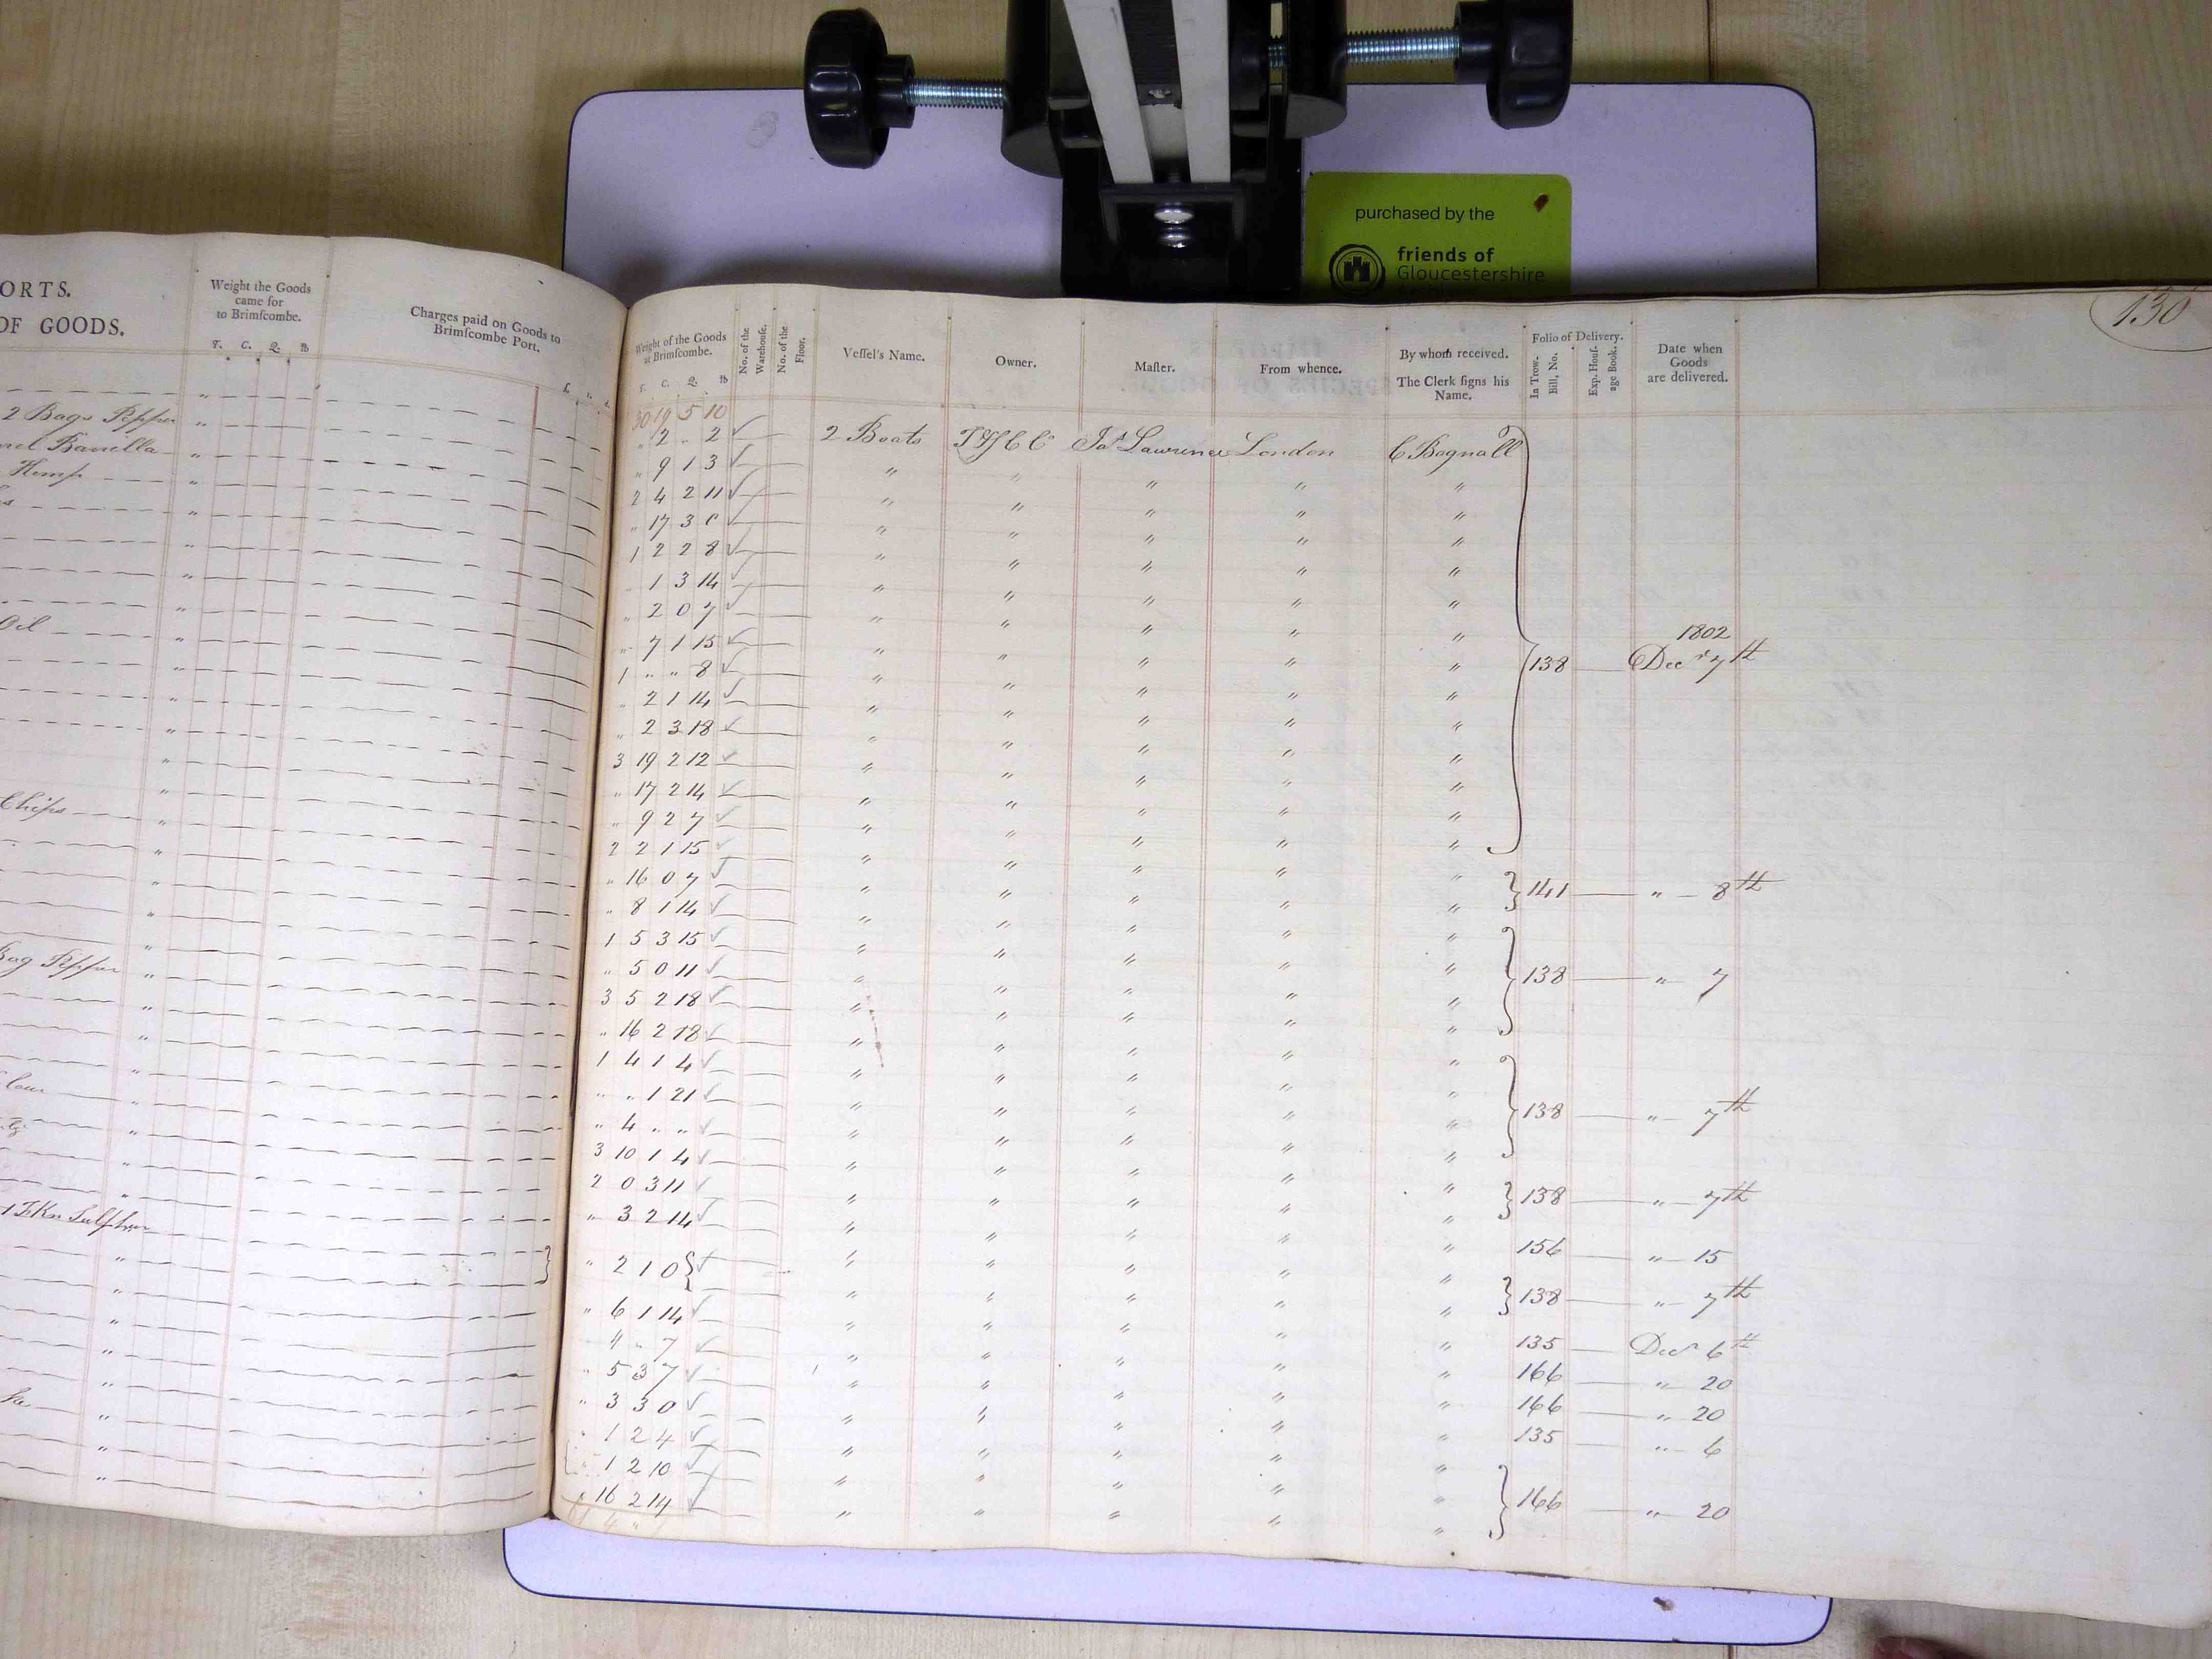 purchased by the
friends of
Gloucestershire
ORTS.
OF GOODS.
Weight the Goods
came for
to Brimſcombe.
T. C. Q. ℔
Charges paid on Goods to
Brimſcombe Port.
2 Bags Pepper
Barilla
Hemp
Oil
Chips
Bag Pepper
Sulphur
130
Weight of the Goods
at Brimſcombe.
T. C. Q. ℔
No. of the
Warehouſe.
No. of the
Floor.
Veſſel's Name.
Owner.
Maſter.
From whence.
By whom received.
The Clerk ſigns his
Name.
Folio of Delivery.
In Trow.
Bill, No.
Exp. Houſ-
age Book.
Date when
Goods
are delivered.
30 19 5 10
" 2 " 2 2 Boats Jas Lawrence London C Bagnall
" 9 1 3 " " " " "
2 4 2 11 " " " " "
" 17 3 0 " " " " "
1 2 2 8 " " " " "
" 1 3 14 " " " " "
" 2 0 7 " " " " "
1802
" 7 1 15 " " " " " 138 Decr 7th
1 " " 8 " " " " "
" 2 1 14 " " " " "
" 2 3 18 " " " " "
3 19 2 12 " " " " "
" 17 2 14 " " " " "
" 9 2 7 " " " " "
2 2 1 15 " " " " "
" 16 0 7 " " " " " 141 " 8th
" 8 1 14 " " " " "
1 5 3 15 " " " " "
" 5 0 11 " " " " " 138 " 7
3 5 2 18 " " " " "
" 16 2 18 " " " " "
1 4 1 4 " " " " "
" " 1 21 " " " " " 138 " 7th
" 4 " " " " " " "
3 10 1 4 " " " " "
2 0 3 11 " " " " " 138 " 7th
" 3 2 14 " " " " "
" 2 1 0 " " " " " 156 " 15
" 6 1 14 " " " " " 138 " 7th
4 " 7 " " " " " 135 Decr 6th
" 5 3 7 " " " " " 166 " 20
" 3 3 0 " " " " " 166 " 20
" 1 2 4 " " " " " 135 " 6
" 1 2 10 " " " " " 166 " 20
" 16 2 14 " " " " "